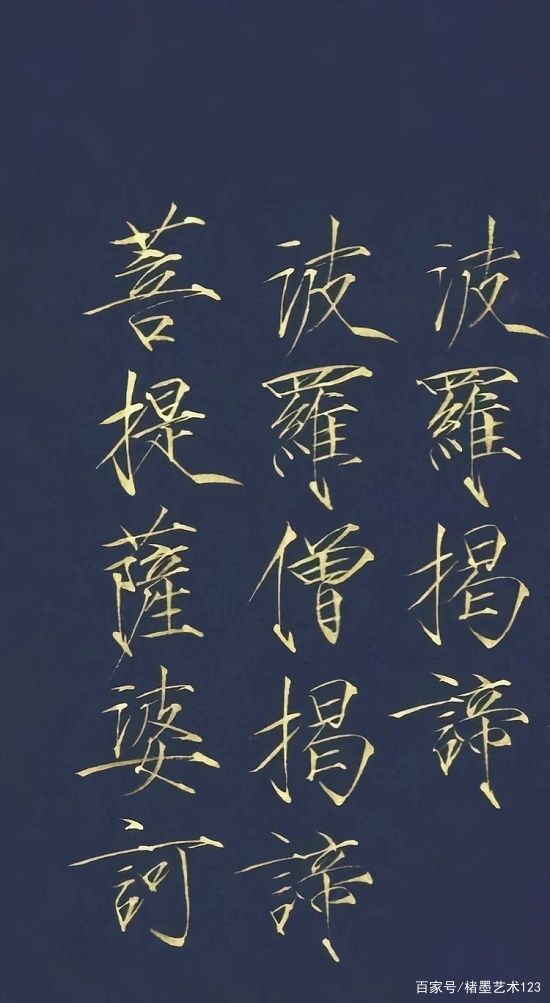 波羅揭諦
波羅僧揭諦
菩提薩婆訶
百家号/楮墨艺术123